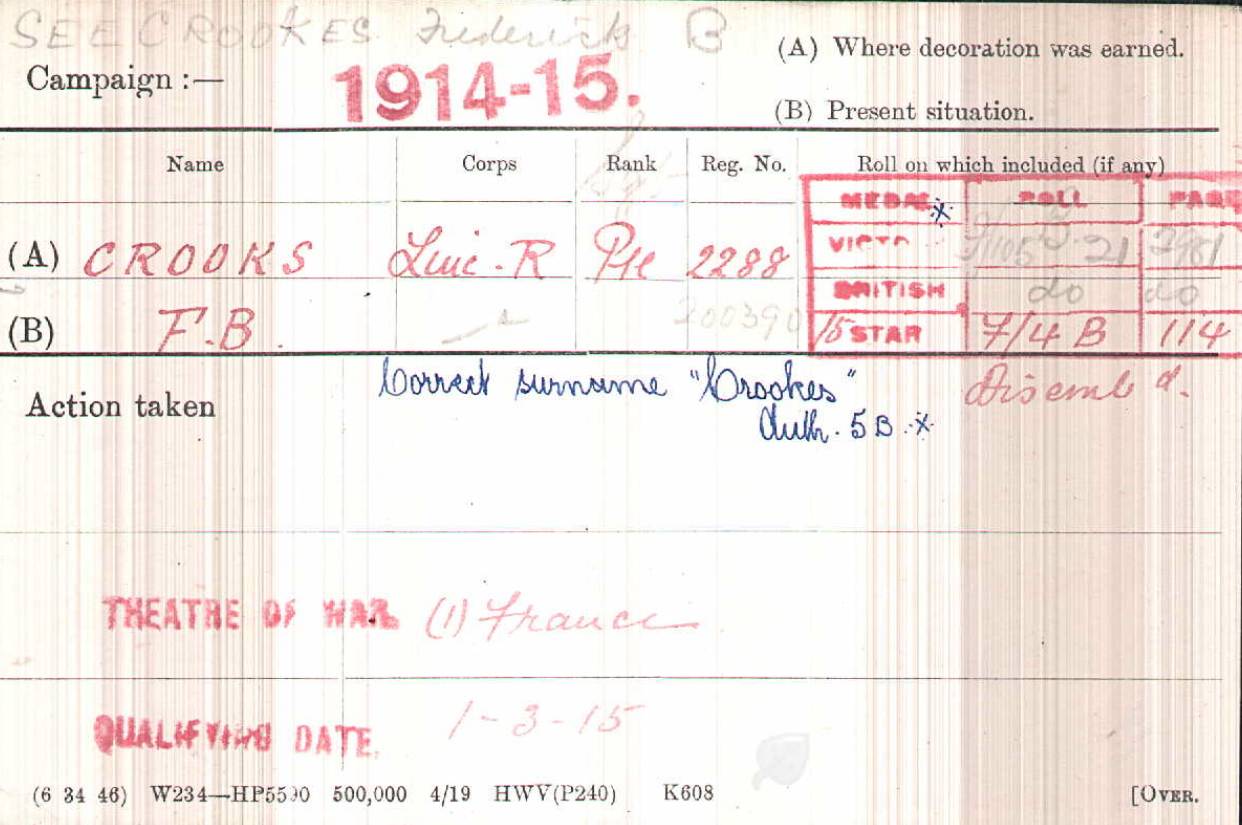 SEE CROOKES Frederick B
(A) Where decoration was earned.
Campaign :— 1914-15.
(B) Present situation.
Name Corps Rank Reg. No. Roll on which included (if any)
MEDAL * ROLL PAGE
(A) CROOKS Linc. R Pte 2288 VICTO 21
BRITISH do do
(B) F.B. 200390 15 STAR 7/4 B 114
Action taken Correct surname "Crookes" Disemb d.
Auth. 5 B *
THEATRE OF WAR. (1) France
QUALIFYING DATE. 1-3-15
(6 34 46) W234—HP5590 500,000 4/19 HWV(P240) K608 [OVER.